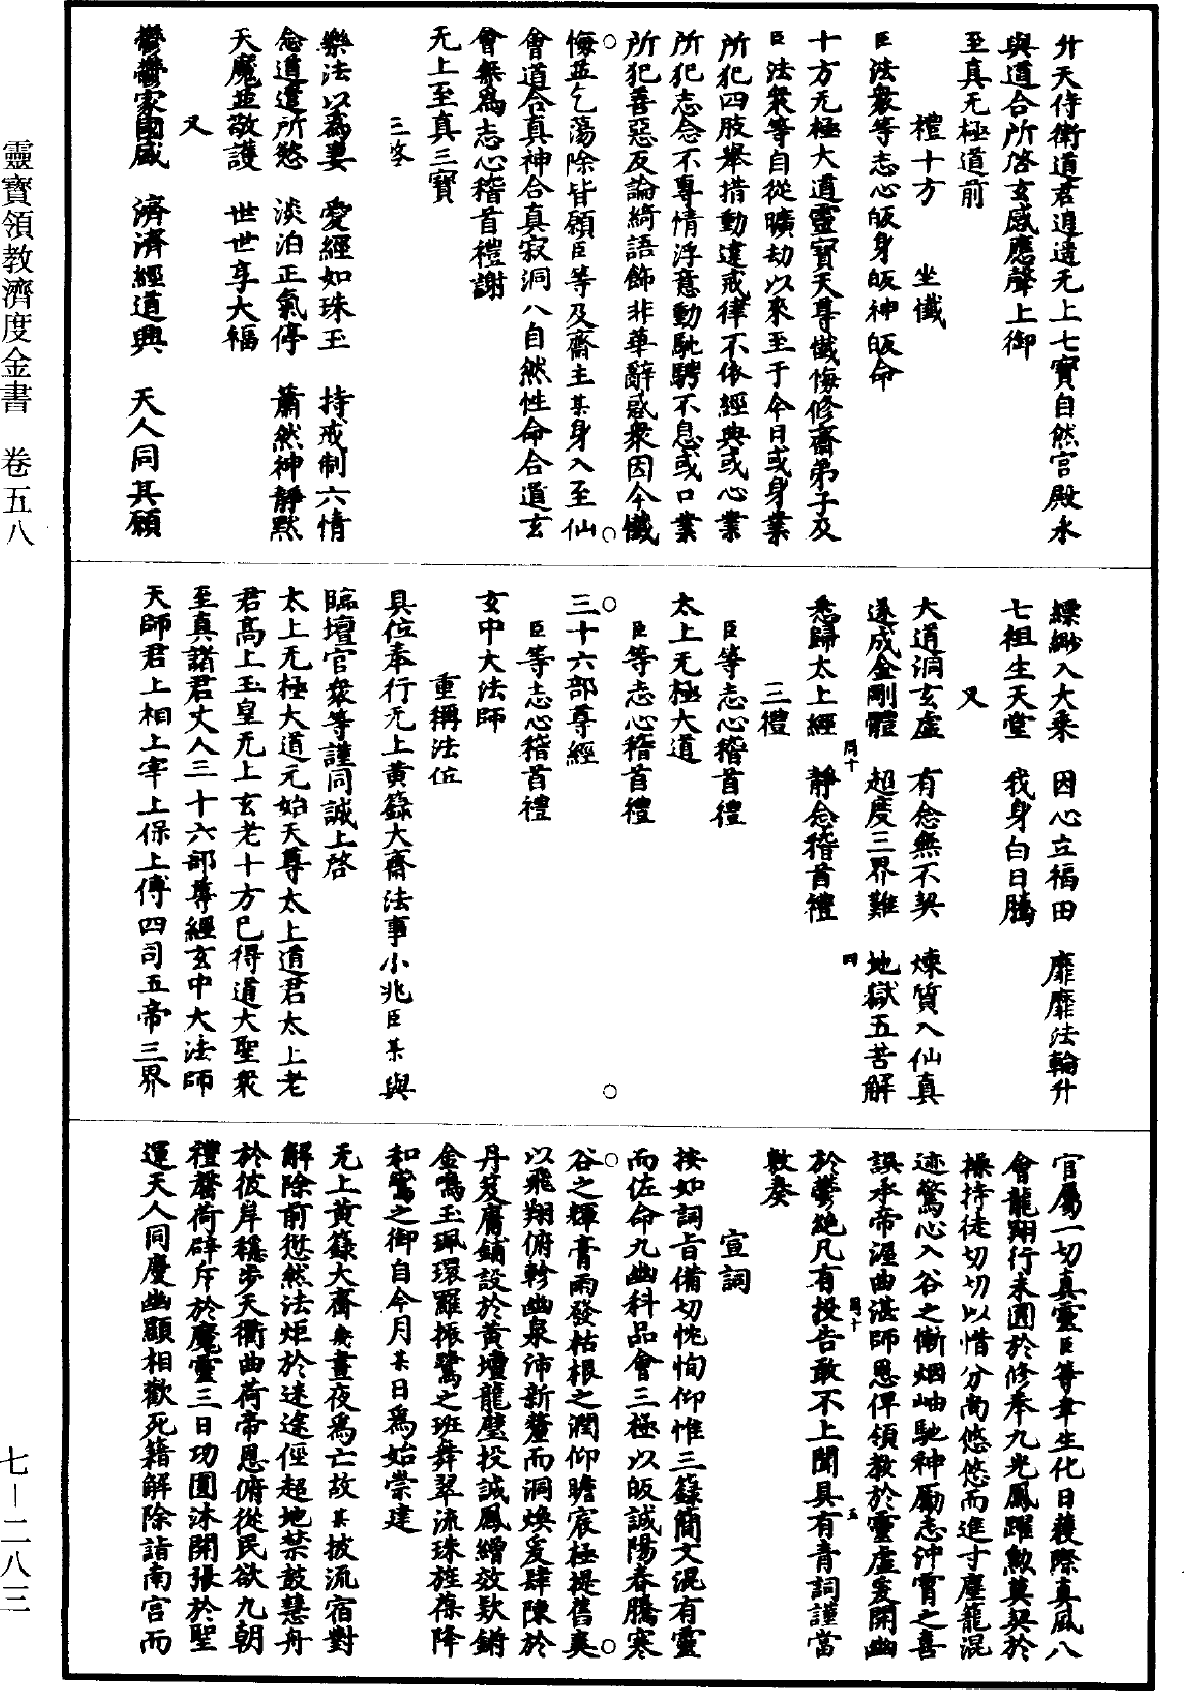 靈寶領教濟度金書 卷五八
七－二八三
升天侍衛道君逍遥无上七寶自然宫殿永
與道合所啓玄感應聲上御
至真无極道前
禮十方 坐懺
臣法衆等志心皈身皈神皈命
十方无極大道靈寶天尊懺悔修齋弟子及
臣法衆等自從曠劫以來至于今日或身業
所犯四肢舉措動違戒律不依經典或心業
所犯志念不專情浮意動馳騁不息或口業
所犯善惡反論綺語飾非華辭惑衆因今懺
悔並乞蕩除皆願臣等及齋主某身入至仙
會道合真神合真寂洞八自然性命合道玄
會無爲志心稽首禮謝
无上至真三寶
三啓
樂法以爲妻 愛經如珠玉 持戒制六情
念道遣所慾 淡泊正氣停 蕭然神靜默
天魔並敬護 世世享大福
又
鬱鬱家國盛 濟濟經道興 天人同其願
縹緲入大乘 因心立福田 靡靡法輪升
七祖生天堂 我身白日騰
又
大道洞玄虛 有念無不契 煉質入仙真
遂成金剛體 超度三界難 地獄五苦解
悉歸太上經 靜念稽首禮
三禮
臣等志心稽首禮
太上无極大道
臣等志心稽首禮
三十六部尊經
臣等志心稽首禮
玄中大法師
重稱法位
具位奉行无上黄籙大齋法事小兆臣某與
臨壇官衆等謹同誠上啓
太上无極大道元始天尊太上道君太上老
君高上玉皇无上玄老十方已得道大聖衆
至真諸君丈人三十六部尊經玄中大法師
天師君上相上宰上保上傅四司五帝三界
官屬一切真靈臣等幸生化日獲際真風八
會龍翔行未圓於修奉九光鳳躍勲莫契於
操持徒切切以惜分尚悠悠而進寸塵籠混
迹驚心入谷之慚烟岫馳神勵志沖霄之喜
誤承帝渥曲湛師恩俾領教於靈虛爰開幽
於鬱絶凡有投告敢不上聞具有青詞謹當
敷奏
宣詞
按如詞旨備切忱恂仰惟三籙簡文混有靈
而佐命九幽科品會三極以皈誠陽春騰寒
谷之輝膏雨發枯根之潤仰瞻宸極提舊爽
以飛翔俯軫幽泉沛新釐而洞煥爰肆陳於
丹笈廣鋪設於黄壇龍璧投誠鳳繒效欵鏘
金鳴玉珮環羅振鷺之班舞翠流珠旌葆降
和鸞之御自今月某日爲始崇建
无上黄籙大齋幾晝夜爲亡故某披流宿對
解除前愆然法炬於迷途徑超地禁鼓慧舟
於彼岸穩步天衢曲荷帝恩俯從民欲九朝
禮罄荷辟斥於魔靈三日功圓沐開張於聖
運天人同慶幽顯相歡死籍解除詣南宫而